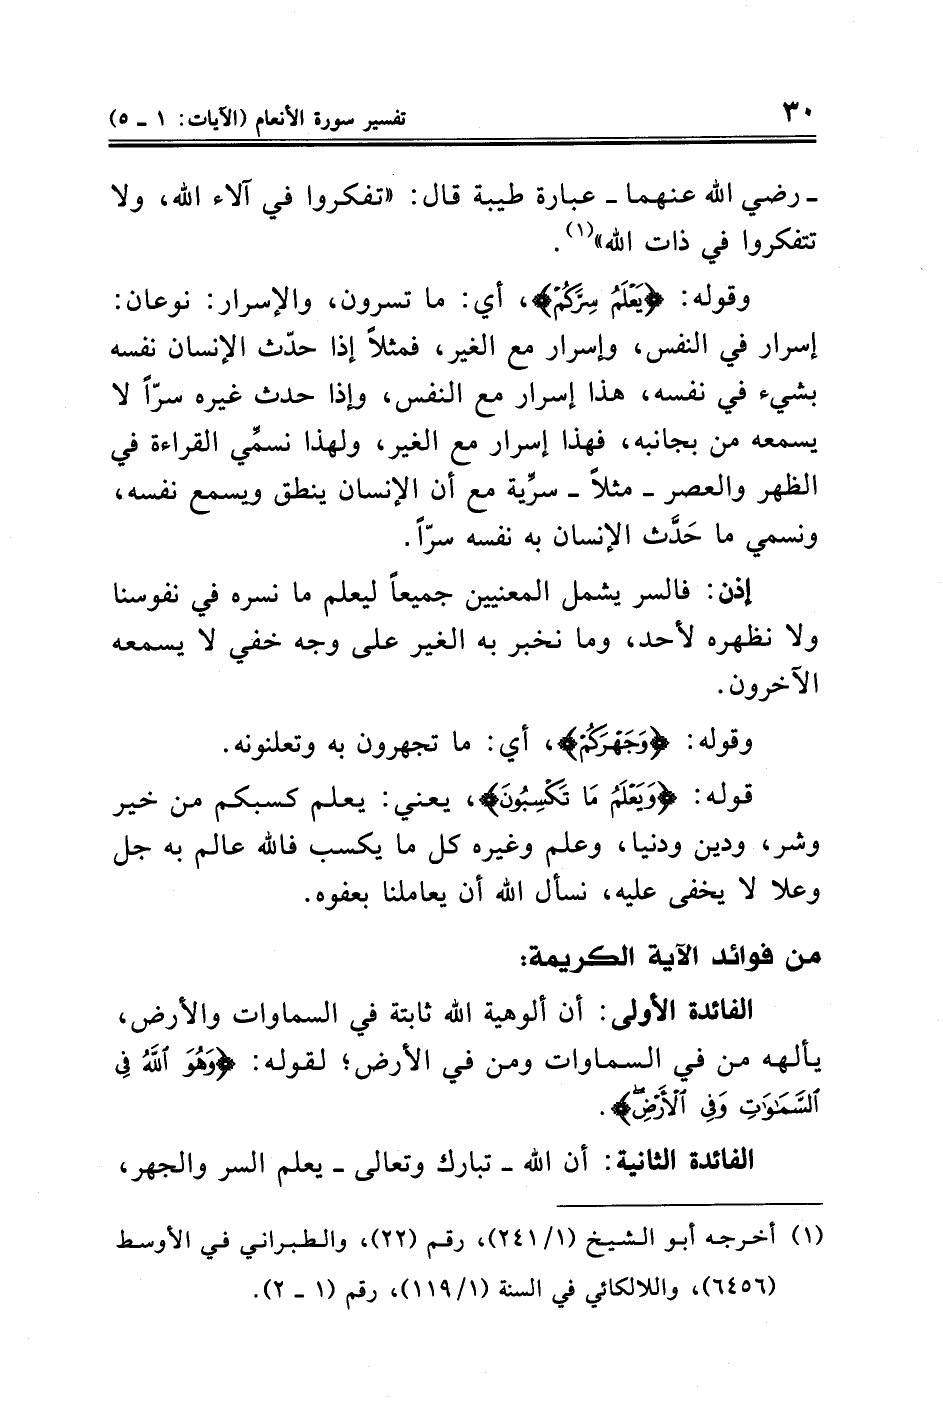 ٣٠ تفسير سورة الأنعام (الآيات: ١ ـ ٥)
ـ رضي الله عنهما ـ عبارة طيبة قال: «تفكروا في آلاء الله، ولا
تتفكروا في ذات الله»(١).
وقوله: ﴿يَعْلَمُ سِرَّكُمْ﴾، أي: ما تسرون، والإسرار: نوعان:
إسرار في النفس، وإسرار مع الغير، فمثلاً إذا حدّث الإنسان نفسه
بشيء في نفسه، هذا إسرار مع النفس، وإذا حدث غيره سرّاً لا
يسمعه من بجانبه، فهذا إسرار مع الغير، ولهذا نسمِّي القراءة في
الظهر والعصر ـ مثلاً ـ سرِّية مع أن الإنسان ينطق ويسمع نفسه،
ونسمي ما حَدَّث الإنسان به نفسه سرّاً.
إذن: فالسر يشمل المعنيين جميعاً ليعلم ما نسره في نفوسنا
ولا نظهره لأحد، وما نخبر به الغير على وجه خفي لا يسمعه
الآخرون.
وقوله: ﴿وَجَهْرَكُمْ﴾، أي: ما تجهرون به وتعلنونه.
قوله: ﴿وَيَعْلَمُ مَا تَكْسِبُونَ﴾، يعني: يعلم كسبكم من خير
وشر، ودين ودنيا، وعلم وغيره كل ما يكسب فالله عالم به جل
وعلا لا يخفى عليه، نسأل الله أن يعاملنا بعفوه.
من فوائد الآية الكريمة:
الفائدة الأولى: أن ألوهية الله ثابتة في السماوات والأرض،
يألهه من في السماوات ومن في الأرض؛ لقوله: ﴿وَهُوَ ٱللَّهُ فِى
ٱلسَّمَـٰوَٰتِ وَفِى ٱلْأَرْضِۖ﴾.
الفائدة الثانية: أن الله ـ تبارك وتعالى ـ يعلم السر والجهر،
(١) أخرجه أبو الشيخ (٢٤١/١)، رقم (٢٢)، والطبراني في الأوسط
(٦٤٥٦)، واللالكائي في السنة (١١٩/١)، رقم (١ ـ ٢).